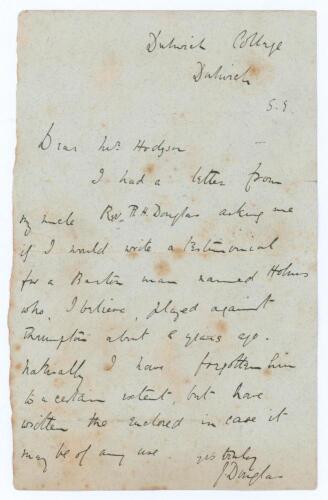 Dulwich College
Dulwich
S.E.
Dear Mr. Hodgson
I had a letter from
my uncle Rev. R.H. Douglas asking me
if I would write a testimonial
for a Barton man named Holmes
who, I believe, played against
Thrumpton about 2 years ago.
Naturally I have forgotten him
to a certain extent, but have
written the enclosed in case it
may be of any use. yrs truly
J Douglas